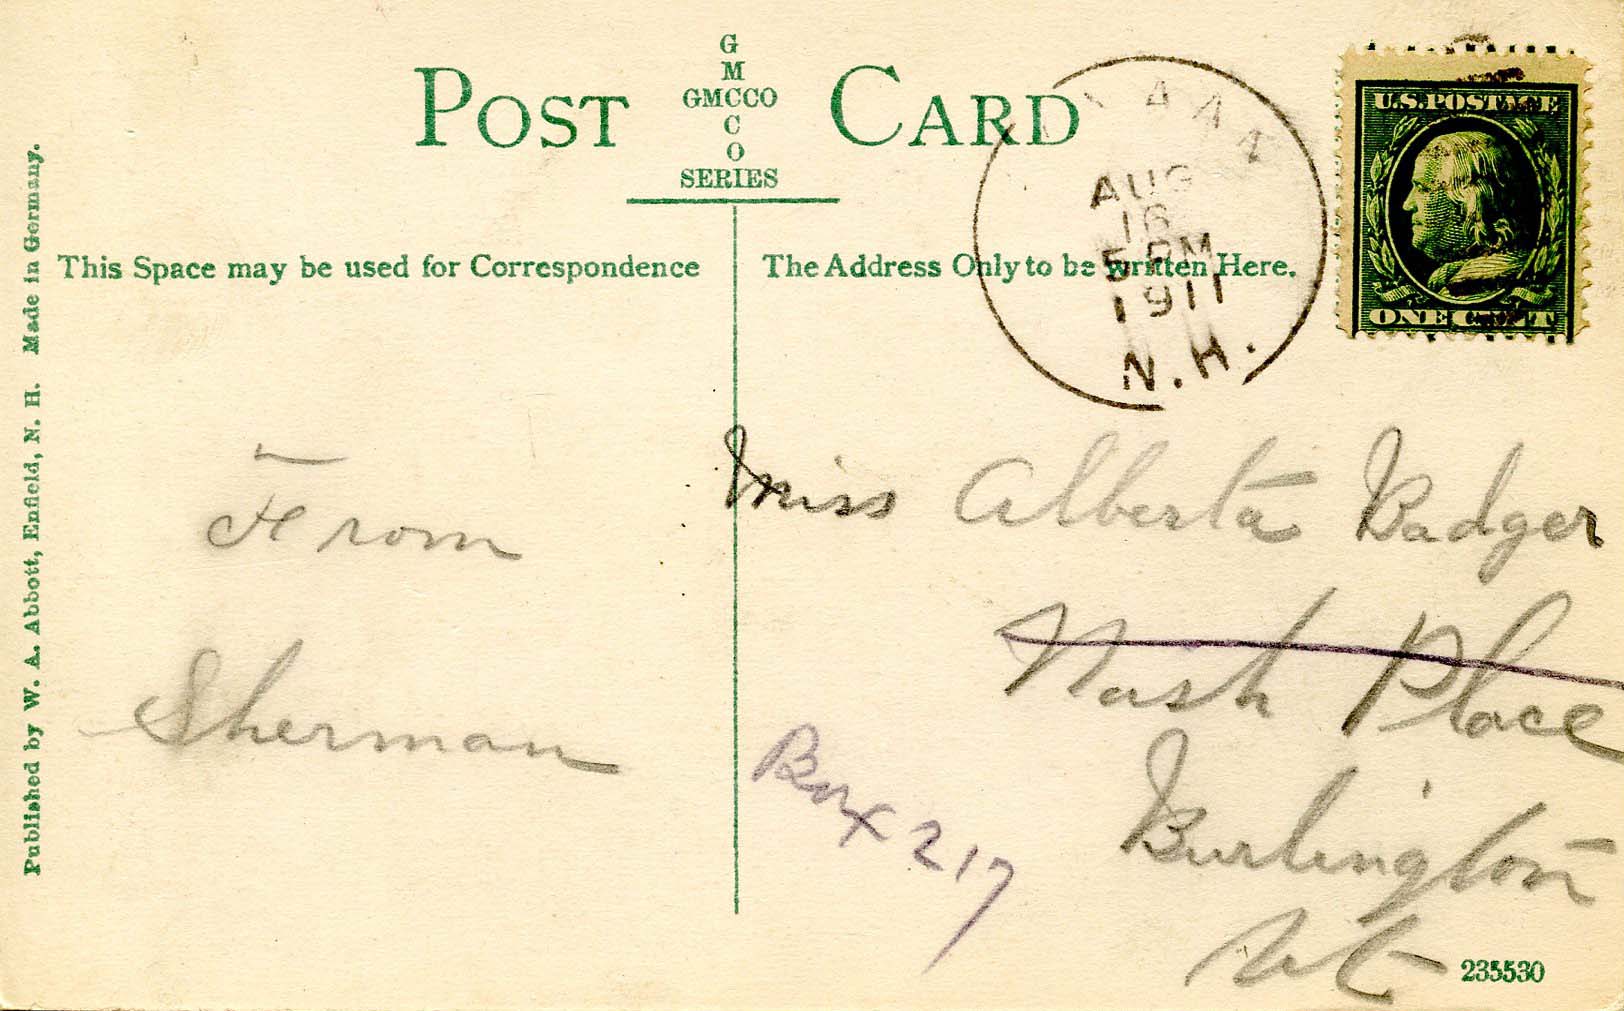 POST CARD
G
M
GMCCO
C
O
SERIES
This Space may be used for Correspondence
The Address Only to be written Here.
Published by W. A. Abbott, Enfield, N. H. Made in Germany.
AUG
16
5 PM
1911
N.H.
U.S. POSTAGE
ONE CENT
From
Sherman
Miss Alberta Badger
Nash Place
Box 217
Burlington
Vt
235530